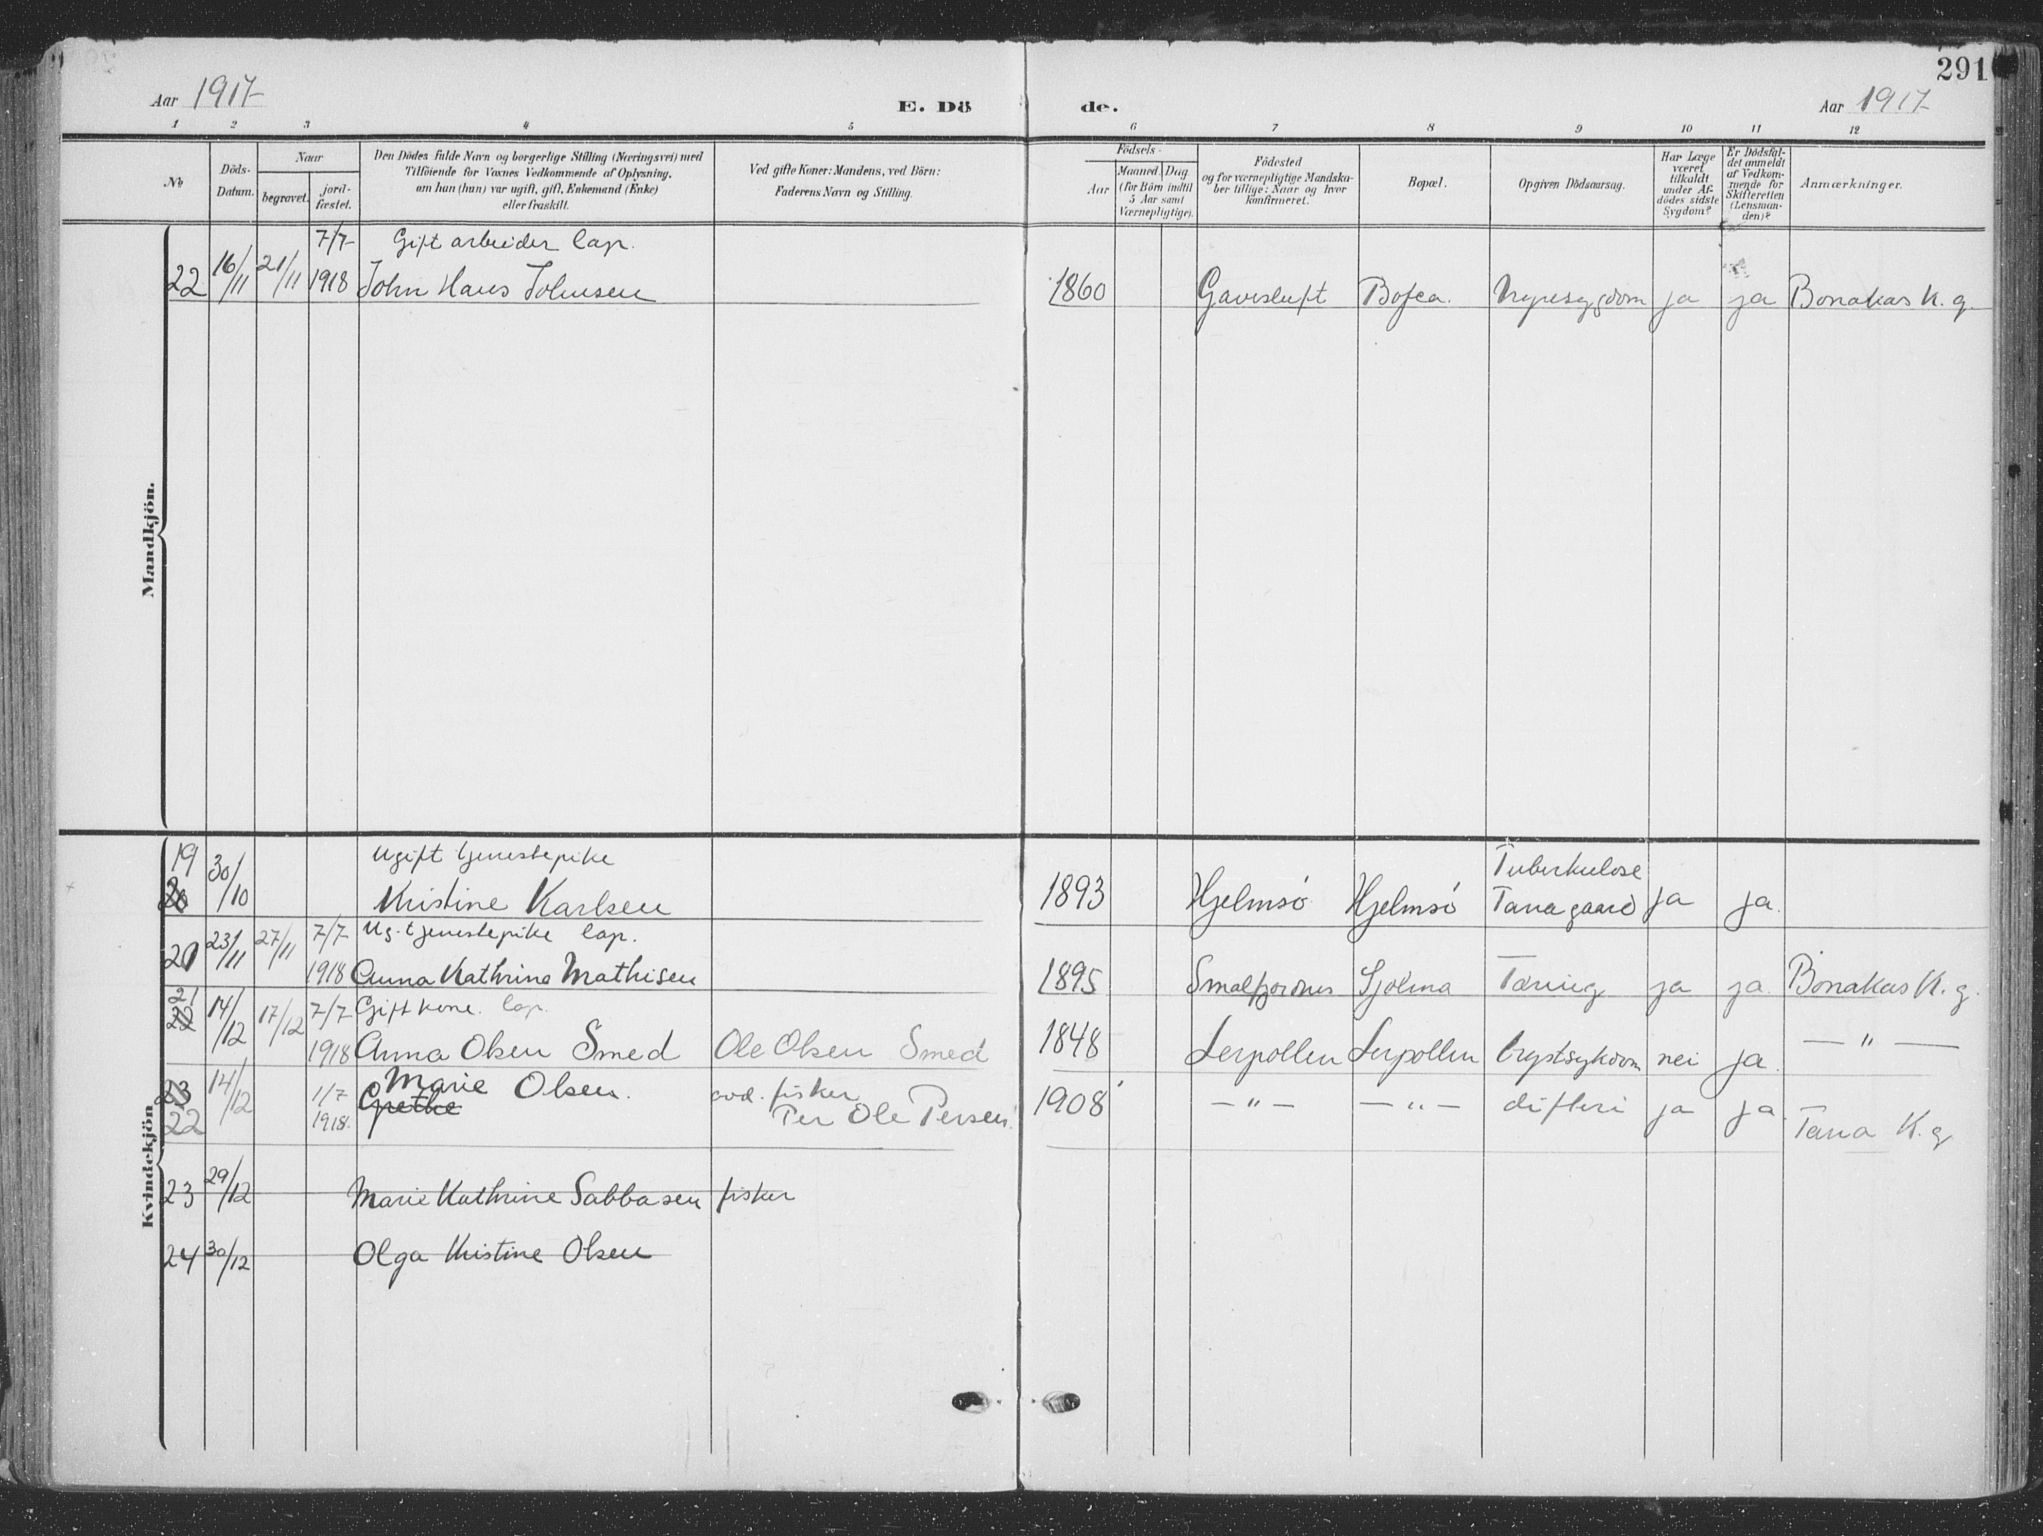 291
Aar 1917
E. Dö de.
Aar 1917
1 2 3 4 5 6 7 8 9 10 11 12
No
Döds-
Datum.
Naar
begravet.
jord-
fæstet.
Den Dödes fulde Navn og borgerlige Stilling (Næringsvei) med
Tilföiende for Voxnes Vedkommende af Oplysning,
om han (hun) var ugift, gift, Enkemand (Enke)
eller fraskilt.
Ved gifte Koner: Mandens, ved Börn:
Faderens Navn og Stilling.
Födsels-
Aar
Maaned. Dag
(for Börn indtil
5 Aar samt
Værnepligtige).
Födested
og for værnepligtige Mandska-
ber tillige: Naar og hvor
konfirmeret.
Bopæl.
Opgiven Dödsaarsag.
Har Læge
været
tilkaldt
under Af-
dödes sidste
Sygdom?
Er Dödsfal-
det anmeldt
af Vedkom-
mende for
Skifteretten
(Lensman-
den)?
Anmærkninger.
Mandkjön.
7/7 Gift arbeider lap.
22 16/11 21/11 1918 John Hans Johnsen 1860 Gavesluft Bofea. Nyresygdom ja ja Bonakas K. g.
Kvindekjön
19 30/10 Ugift tjenestepike Tuberkulose
20 Kristine Karlsen 1893 Hjelmsö Hjelmsö Tanagaard ja ja.
23/11 27/11 7/7 Ug. tjenestepike lap.
20 1918 Anna Kathrine Mathisen 1895 Smalfjorden Sjölma Tæring ja ja. Bonakas K. g.
21 14/12 17/12 7/7 Gift kone. lap.
1918 Anna Olsen Smed Ole Olsen Smed 1848 Lerpollen Lerpollen brystsykdom nei ja. — " —
23 14/12 1/7 Marie Olsen. avd. fisker 1908 — " — — " — difteri ja ja.
22 1918. Grethe Per Ole Persen Tana K. g
23 29/12 Marie Kathrine Sabbasen fisker
24 30/12 Olga Kristine Olsen